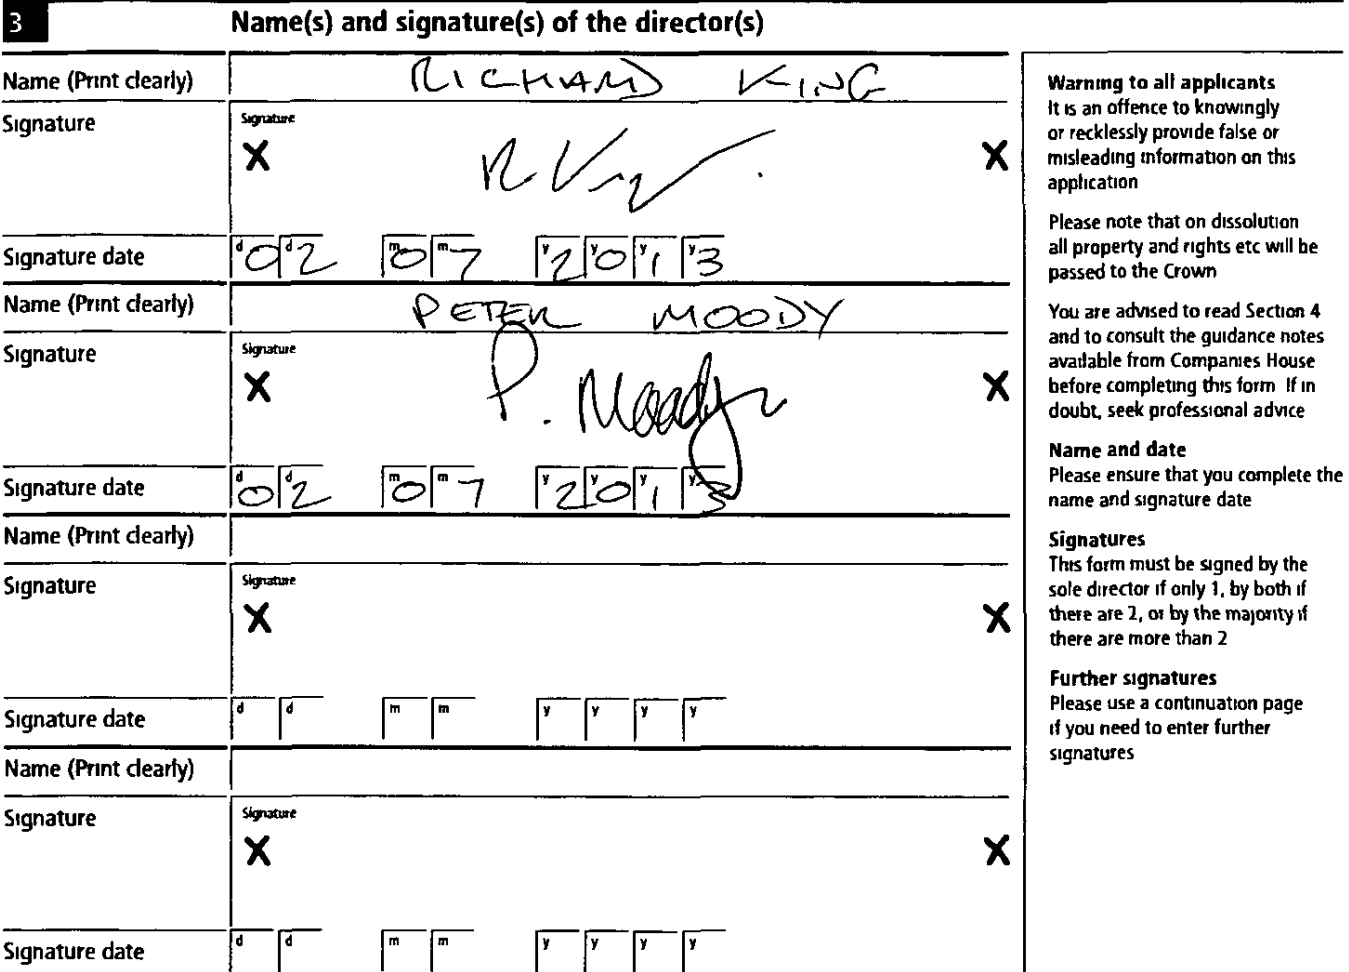 3 Name(s) and signature(s) of the director(s)
Name (Print clearly) RICHARD KING
Signature Signature
X R King X
Signature date d0 d2 m0 m7 y2 y0 y1 y3
Name (Print clearly) PETER MOODY
Signature Signature
X P. Moody X
Signature date d0 d2 m0 m7 y2 y0 y1 y3
Name (Print clearly)
Signature Signature
X X
Signature date d d m m y y y y
Name (Print clearly)
Signature Signature
X X
Signature date d d m m y y y y
Warning to all applicants
It is an offence to knowingly
or recklessly provide false or
misleading information on this
application
Please note that on dissolution
all property and rights etc will be
passed to the Crown
You are advised to read Section 4
and to consult the guidance notes
available from Companies House
before completing this form If in
doubt, seek professional advice
Name and date
Please ensure that you complete the
name and signature date
Signatures
This form must be signed by the
sole director if only 1, by both if
there are 2, or by the majority if
there are more than 2
Further signatures
Please use a continuation page
if you need to enter further
signatures